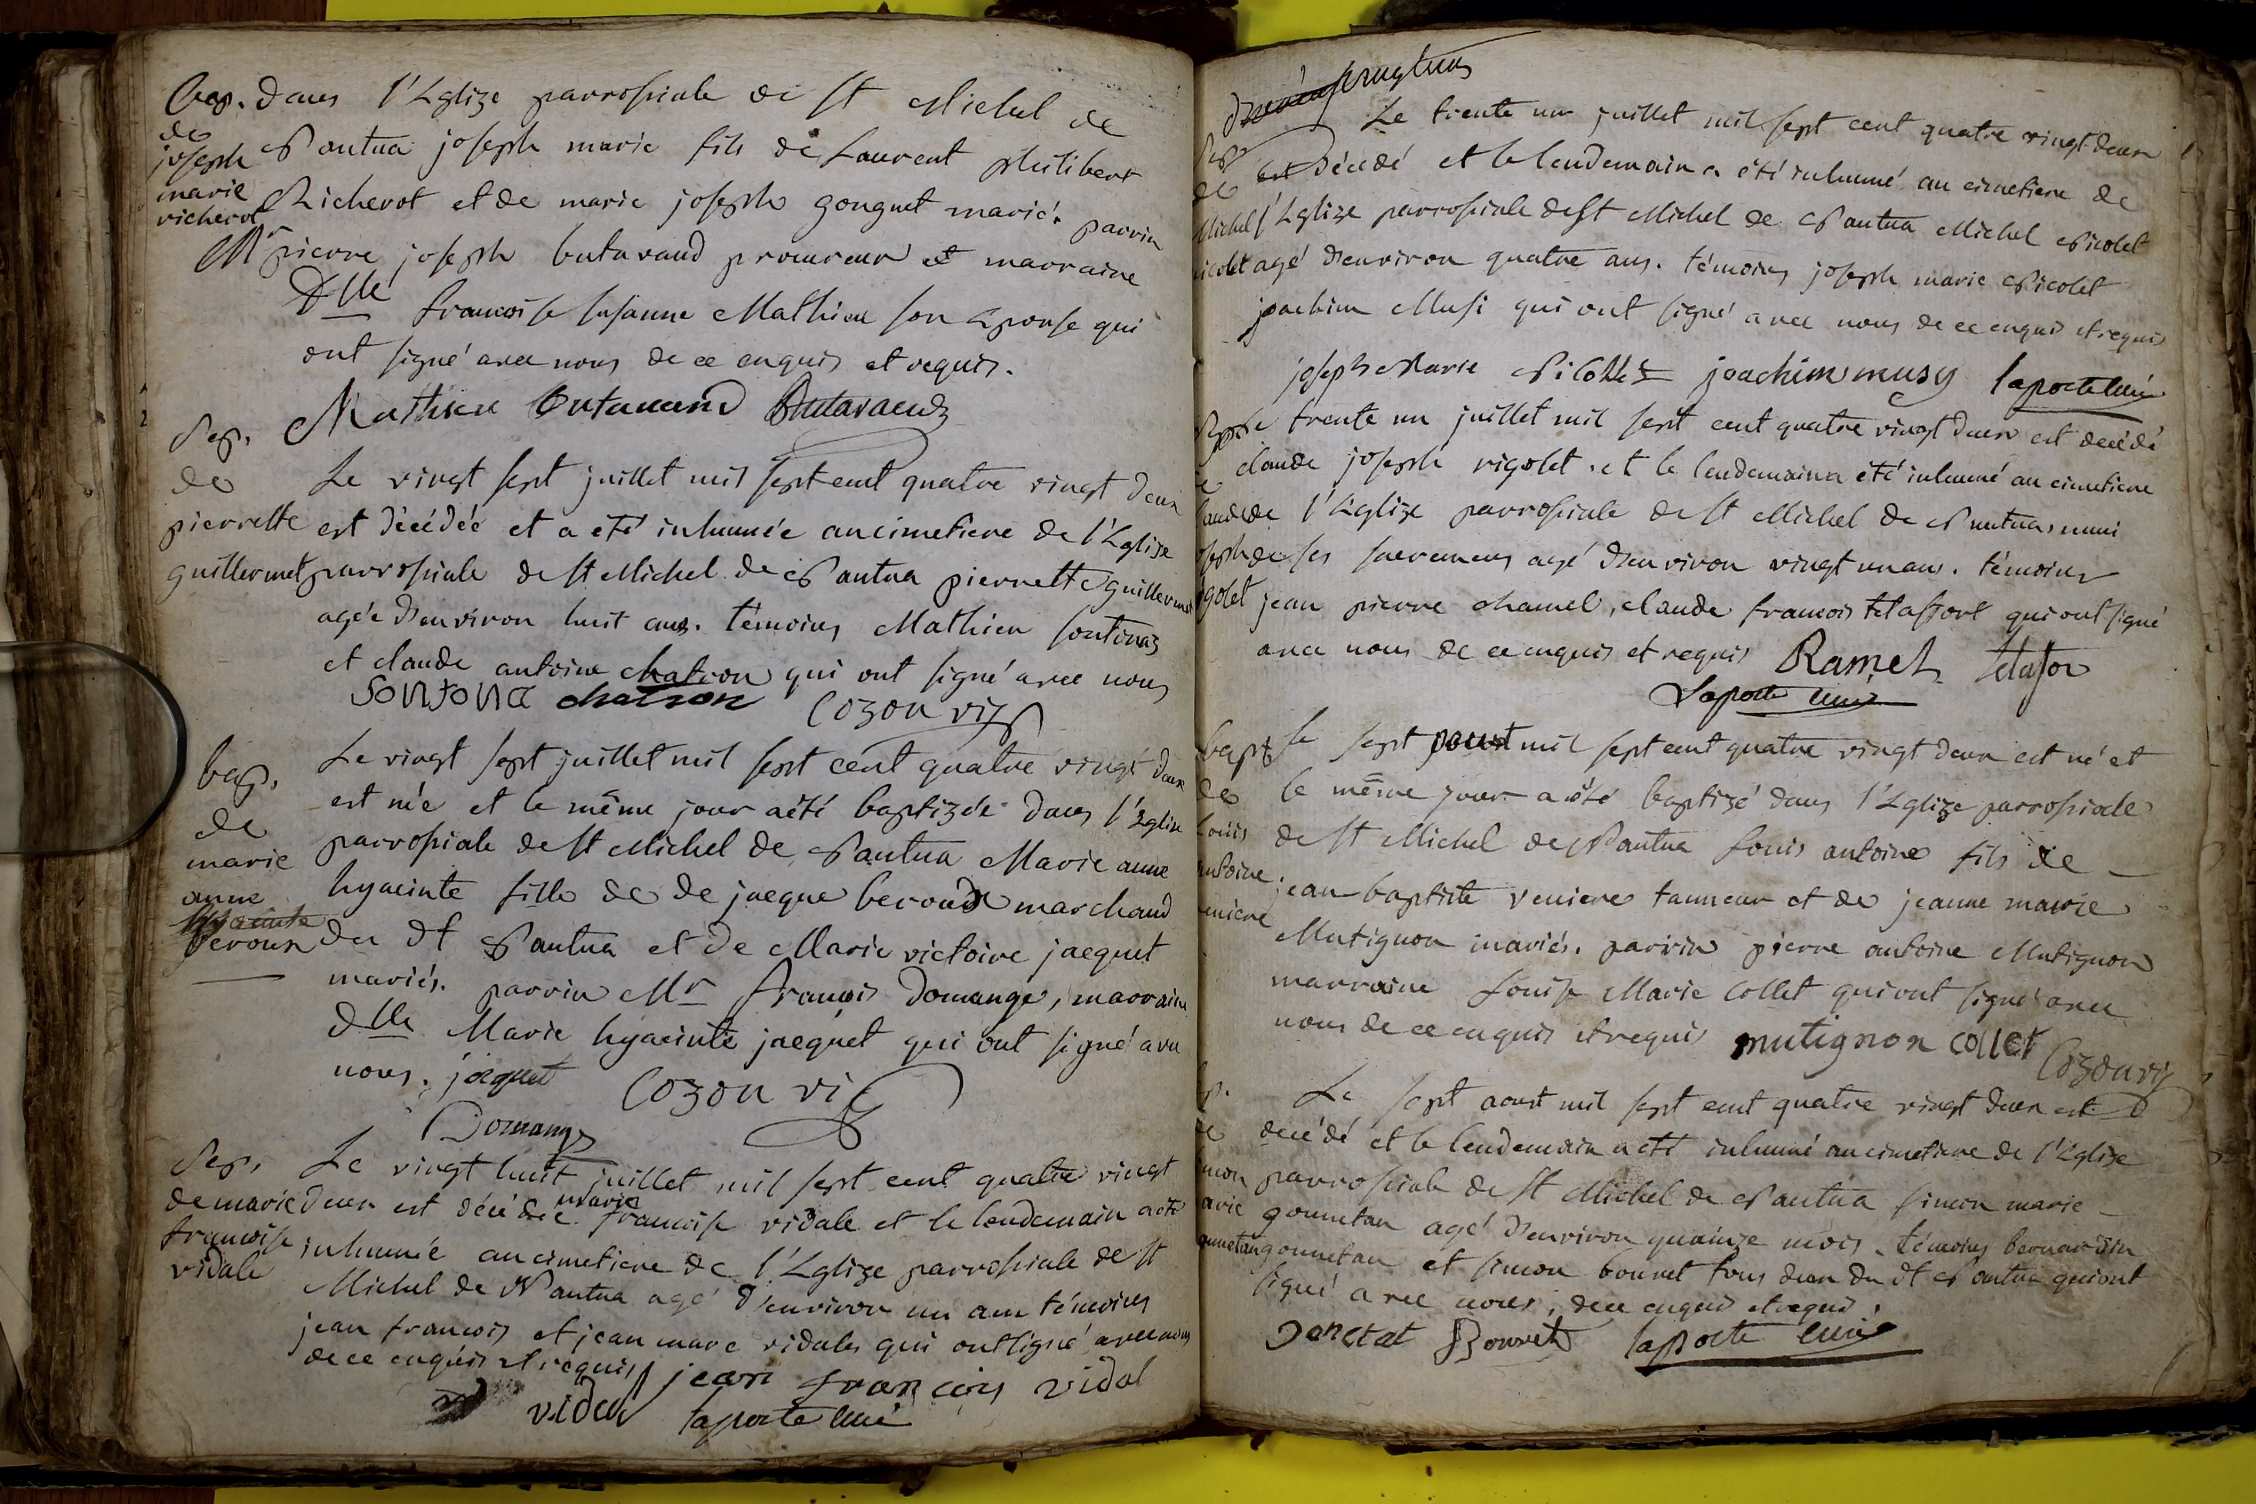 Bap. dans l'Eglize parrossiale de St Michel de
de
joseph
marie
richerot
Nantua joseph marie fils de Laurent philibert
Richerot et de marie joseph gouguet mariés. parrin
Mr pierre joseph butavand procureur et marraine
Dlle francoise susanne Mathieu son Epouse qui
ont signé avec nous de ce enquis et requis.
Mathieu Butavand Butavand
Sep.
de
pierrette
guillermet
Le vingt sept juillet mil sept cent quatre vingt deux
est décédée et a été inhumée au cimetiere de l'Eglize
parrossiale de St Michel de Nantua pierrette guillermet
agée d'environ huit ans. témoins Mathieu sontonaz
et claude antoine chatron qui ont signé avec nous
sontona chatron Cozon vic
bap.
de
marie
anne
hyacinte
beroux
Le vingt sept juillet mil sept cent quatre vingt deux
est née et le même jour a été baptizée dans l'Eglize
parrossiale de St Michel de Nantua Marie anne
hyacinte fille de de jacque beroud marchand
du dt Nantua et de Marie victoire jacquet
mariés. parrin Mr francois Domange, marraine
dlle Marie hyacinte jacquet qui ont signé avec
nous. jacquet Cozon vic
Domange
Sep.
de marie
francoise
vidale
Le vingt huit juillet mil sept cent quatre vingt
deux est décédée marie francoise vidale et le lendemain a été
inhumée au cimetiere de l'Eglize parrossiale de St
Michel de Nantua agé d'environ un an témoins
jean francois et jean marc vidales qui ont signé avec nous
de ce enquis et requis jean francois vidal
vidal laporte curé
Le trente un juillet mil sept cent quatre vingt deux
Sep
de
Michel
nicolet
est décédé et le lendemain a été inhumé au cimetiere de
l'Eglize parrossiale de St Michel de Nantua Michel Nicolet
agé d'environ quatre ans. témoins joseph marie Nicolet
joachim Musi qui ont signé avec nous de ce enquis et requis
joseph Marie Nicollet joachim musy laporte curé
Le trente un juillet mil sept cent quatre vingt deux est décédé
claude joseph rigolet. et le lendemain a été inhumé au cimetiere
de l'Eglize parrossiale de St Michel de Nantua, muni
de ses sacremens agé d'environ vingt un ans. témoins
jean pierre chamel, claude francois telassort qui ont signé
avec nous de ce enquis et requis Ramel telasor
Laporte curé
bapt
de
Louis
antoine
veniere
le sept aoust mil sept cent quatre vingt deux est né et
le même jour a été baptizé dans l'Eglize parrossiale
de St Michel de Nantua Louis antoine fils de
jean baptiste veniere tanneur et de jeanne marie
Mutignon mariés. parrin pierre antoine Mutignon
marraine Louise Marie Collet qui ont signé avec
nous de ce enquis et requis mutignon collet Cozon vic
Le sept aoust mil sept cent quatre vingt deux est
décédé et le lendemain a été inhumé au cimetiere de l'Eglize
parrossiale de St Michel de Nantua simon marie
gonnetan agé d'environ quainze mois. témoins bernardin
gonnetan et simon bonnet tous deux du dt Nantua qui ont
signé avec nous, de ce enquis et requis.
Bonnet laporte curé